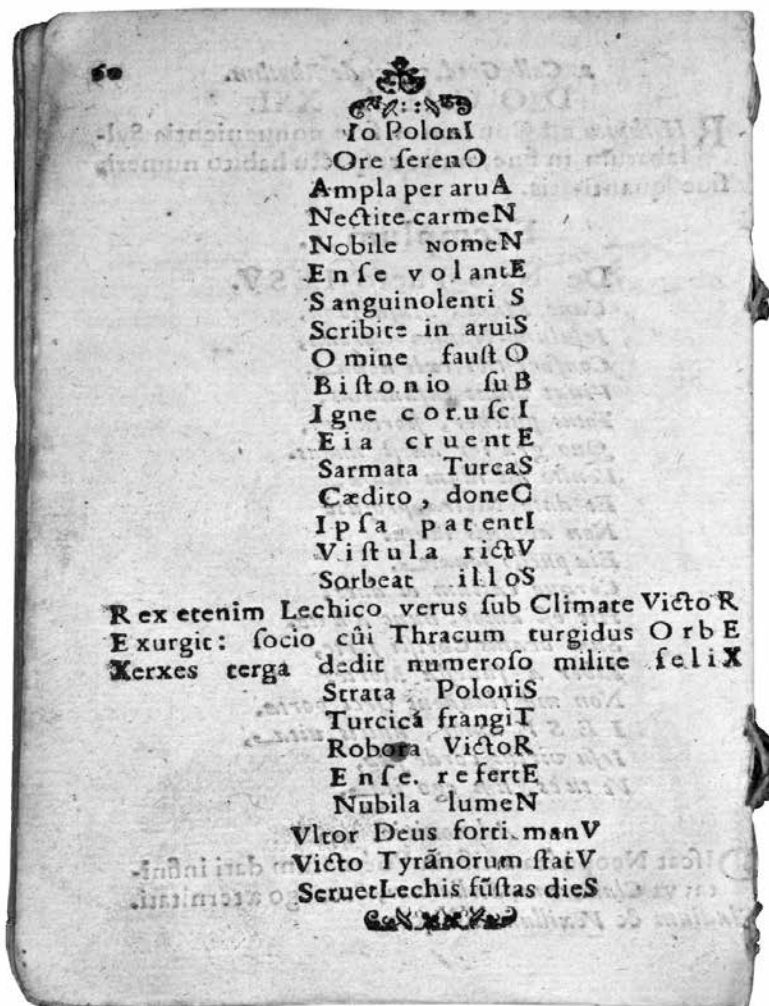 60
Io PolonI
Ore ſerenO
Ampla per aruA
Nectite carmeN
Nobile NomeN
Enſe volantE
Sanguinolenti S
Scribite in aruiS
Omine fauſtO
Biſtonio ſuB
Igne coruſcI
Eia cruentE
Sarmata TurcaS
Cædito, doneC
Ipſa patentI
Viſtula rictV
Sorbeat illoS
Rex etenim Lechico verus ſub Climate VictoR
Exurgit: ſocio cûi Thracum turgidus OrbE
Xerxes terga dedit numeroſo milite feliX
Strata PoloniS
Turcicá frangiT
Robora VictoR
Enſe. refertE
Nubila lumeN
Vltor Deus forti manV
Victo Tyrãnorum ſtatV
SeruetLechis fũſtas dieS